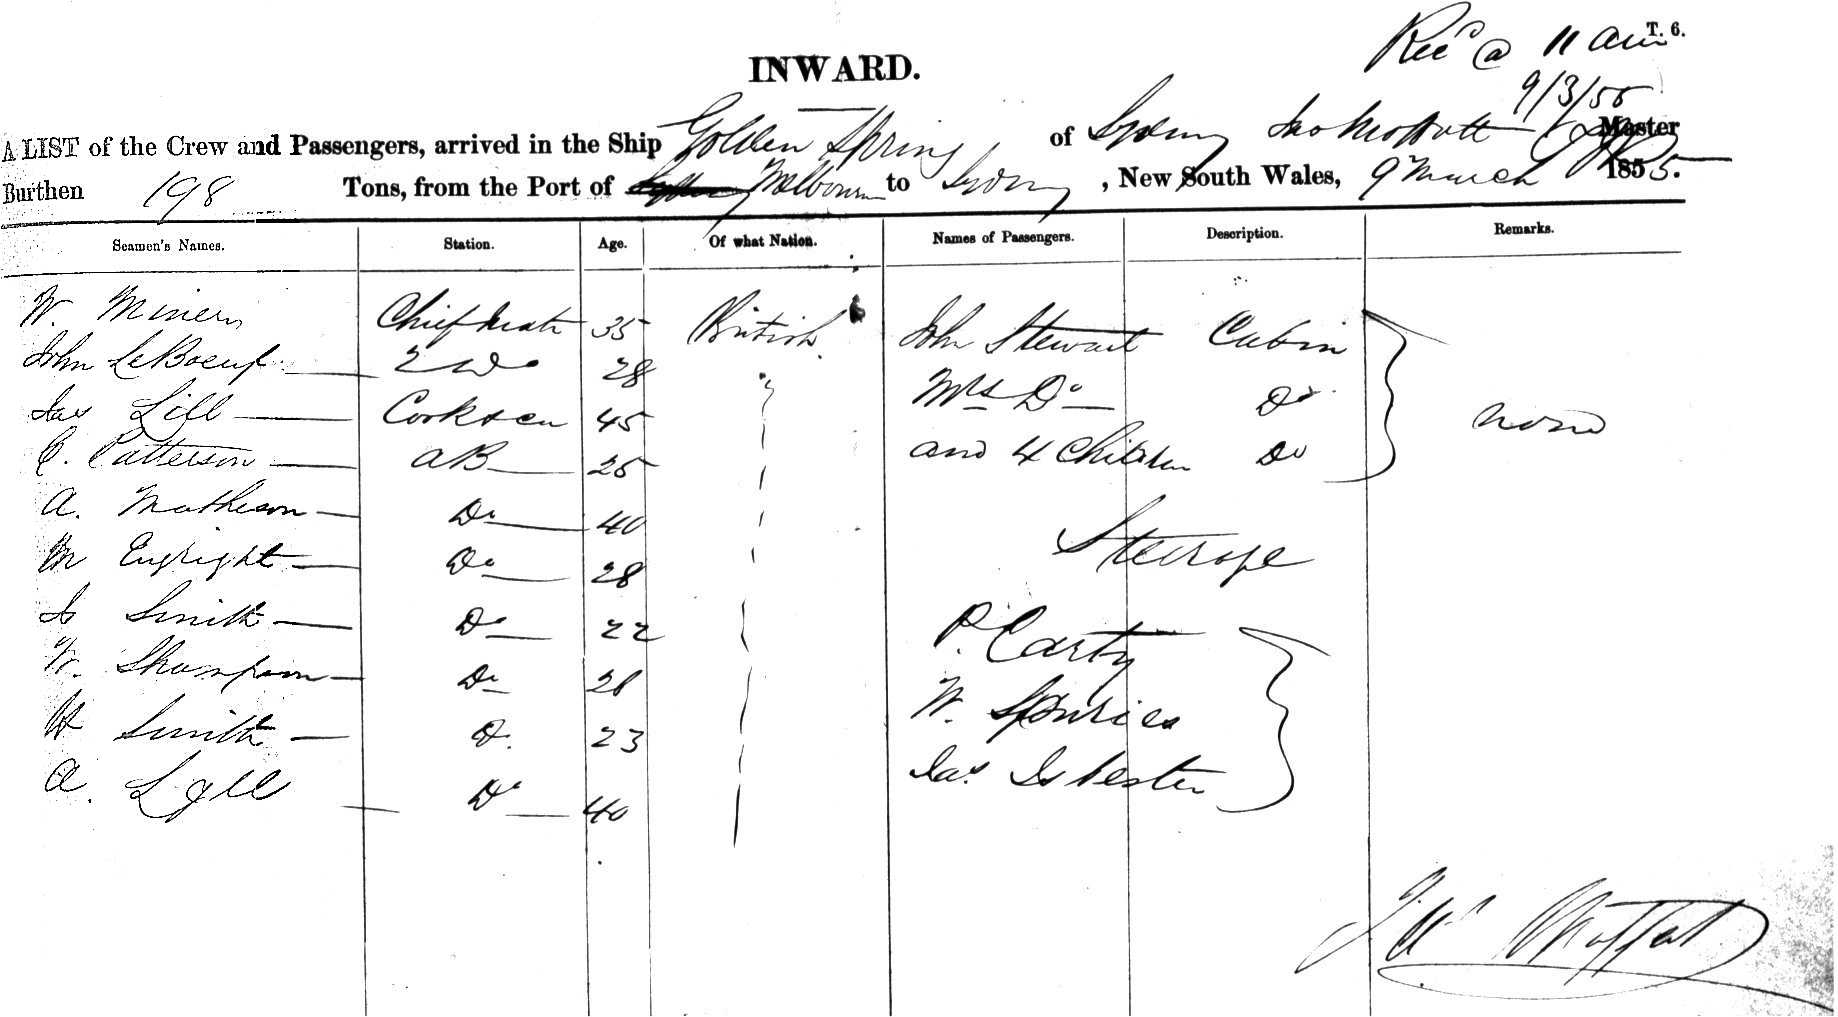 T. 6.
Recd @ 11 am
9/3/55
INWARD.
A LIST of the Crew and Passengers, arrived in the Ship Golden Spring of Sydney Master
Burthen 198 Tons, from the Port of Melbourne to Sydney, New South Wales, 9 March 1855.
Seamen's Names. Station. Age. Of what Nation. Names of Passengers. Description. Remarks.
W. Miners Chief Mate 35 British John Stewart Cabin
John LeBoeuf 2 Do 28 Mrs Do Do
Jas Lill Cook &cu 45 none
C. Patterson AB 25 and 4 Children Do
A. Matheson Do 40
Steerage
M Enright Do 28
Js Smith Do 22 P. Carty
W. Thompson Do 28 W.
H Smith Do 23
A. Lyell Do 40 Jas Isbester
Moffat